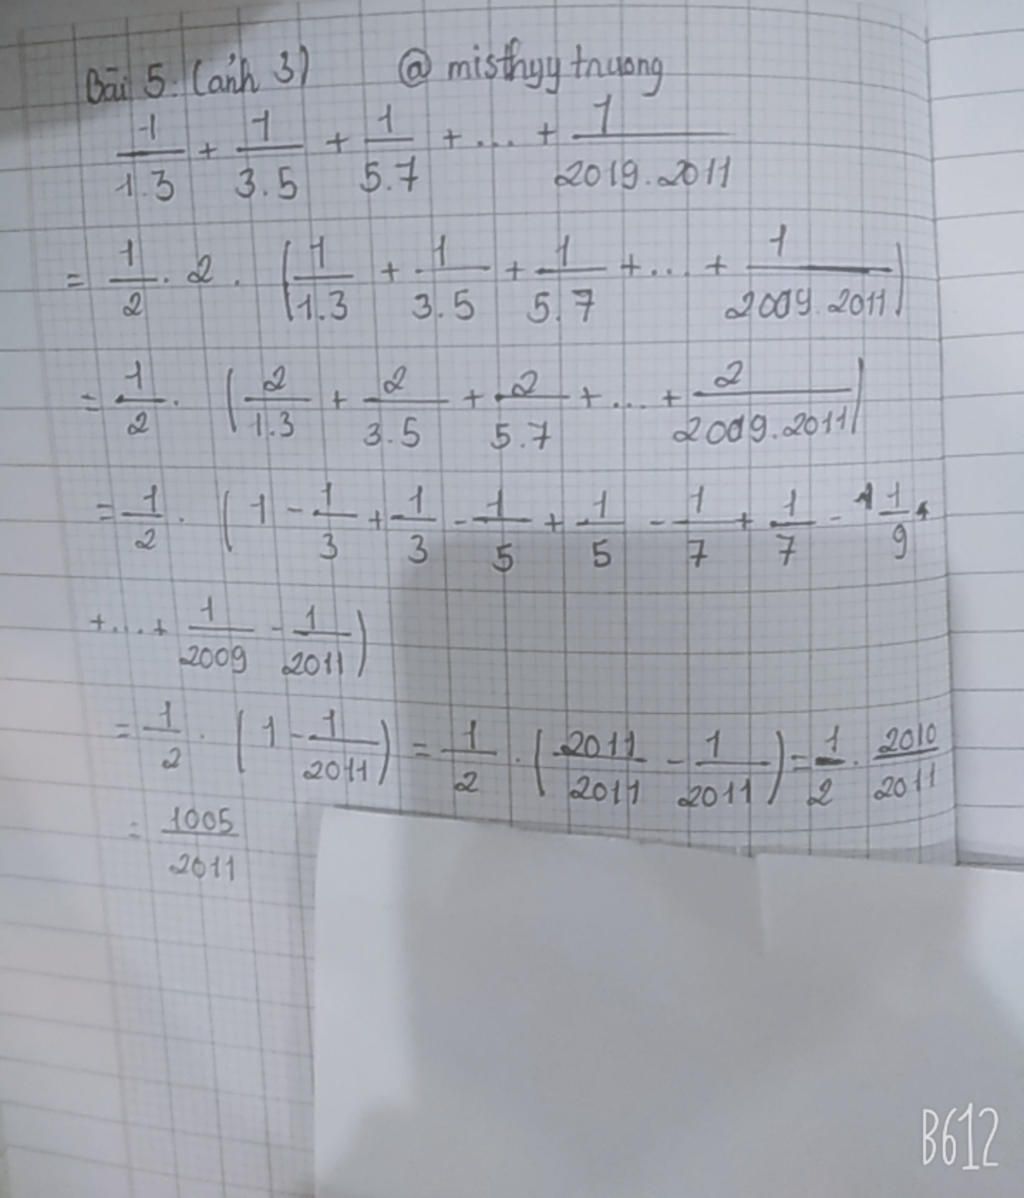 Bài 5: (ảnh 3) @ misthyy truong
1/1.3 + 1/3.5 + 1/5.7 + ... + 1/2019.2011
= 1/2 . 2 . (1/1.3 + 1/3.5 + 1/5.7 + ... + 1/2009.2011)
= 1/2 . (2/1.3 + 2/3.5 + 2/5.7 + ... + 2/2009.2011)
= 1/2 . (1 - 1/3 + 1/3 - 1/5 + 1/5 - 1/7 + 1/7 - 1/9
+ ... + 1/2009 - 1/2011)
= 1/2 . (1 - 1/2011) = 1/2 . (2011/2011 - 1/2011) = 1/2 . 2010/2011
= 1005/2011
B612